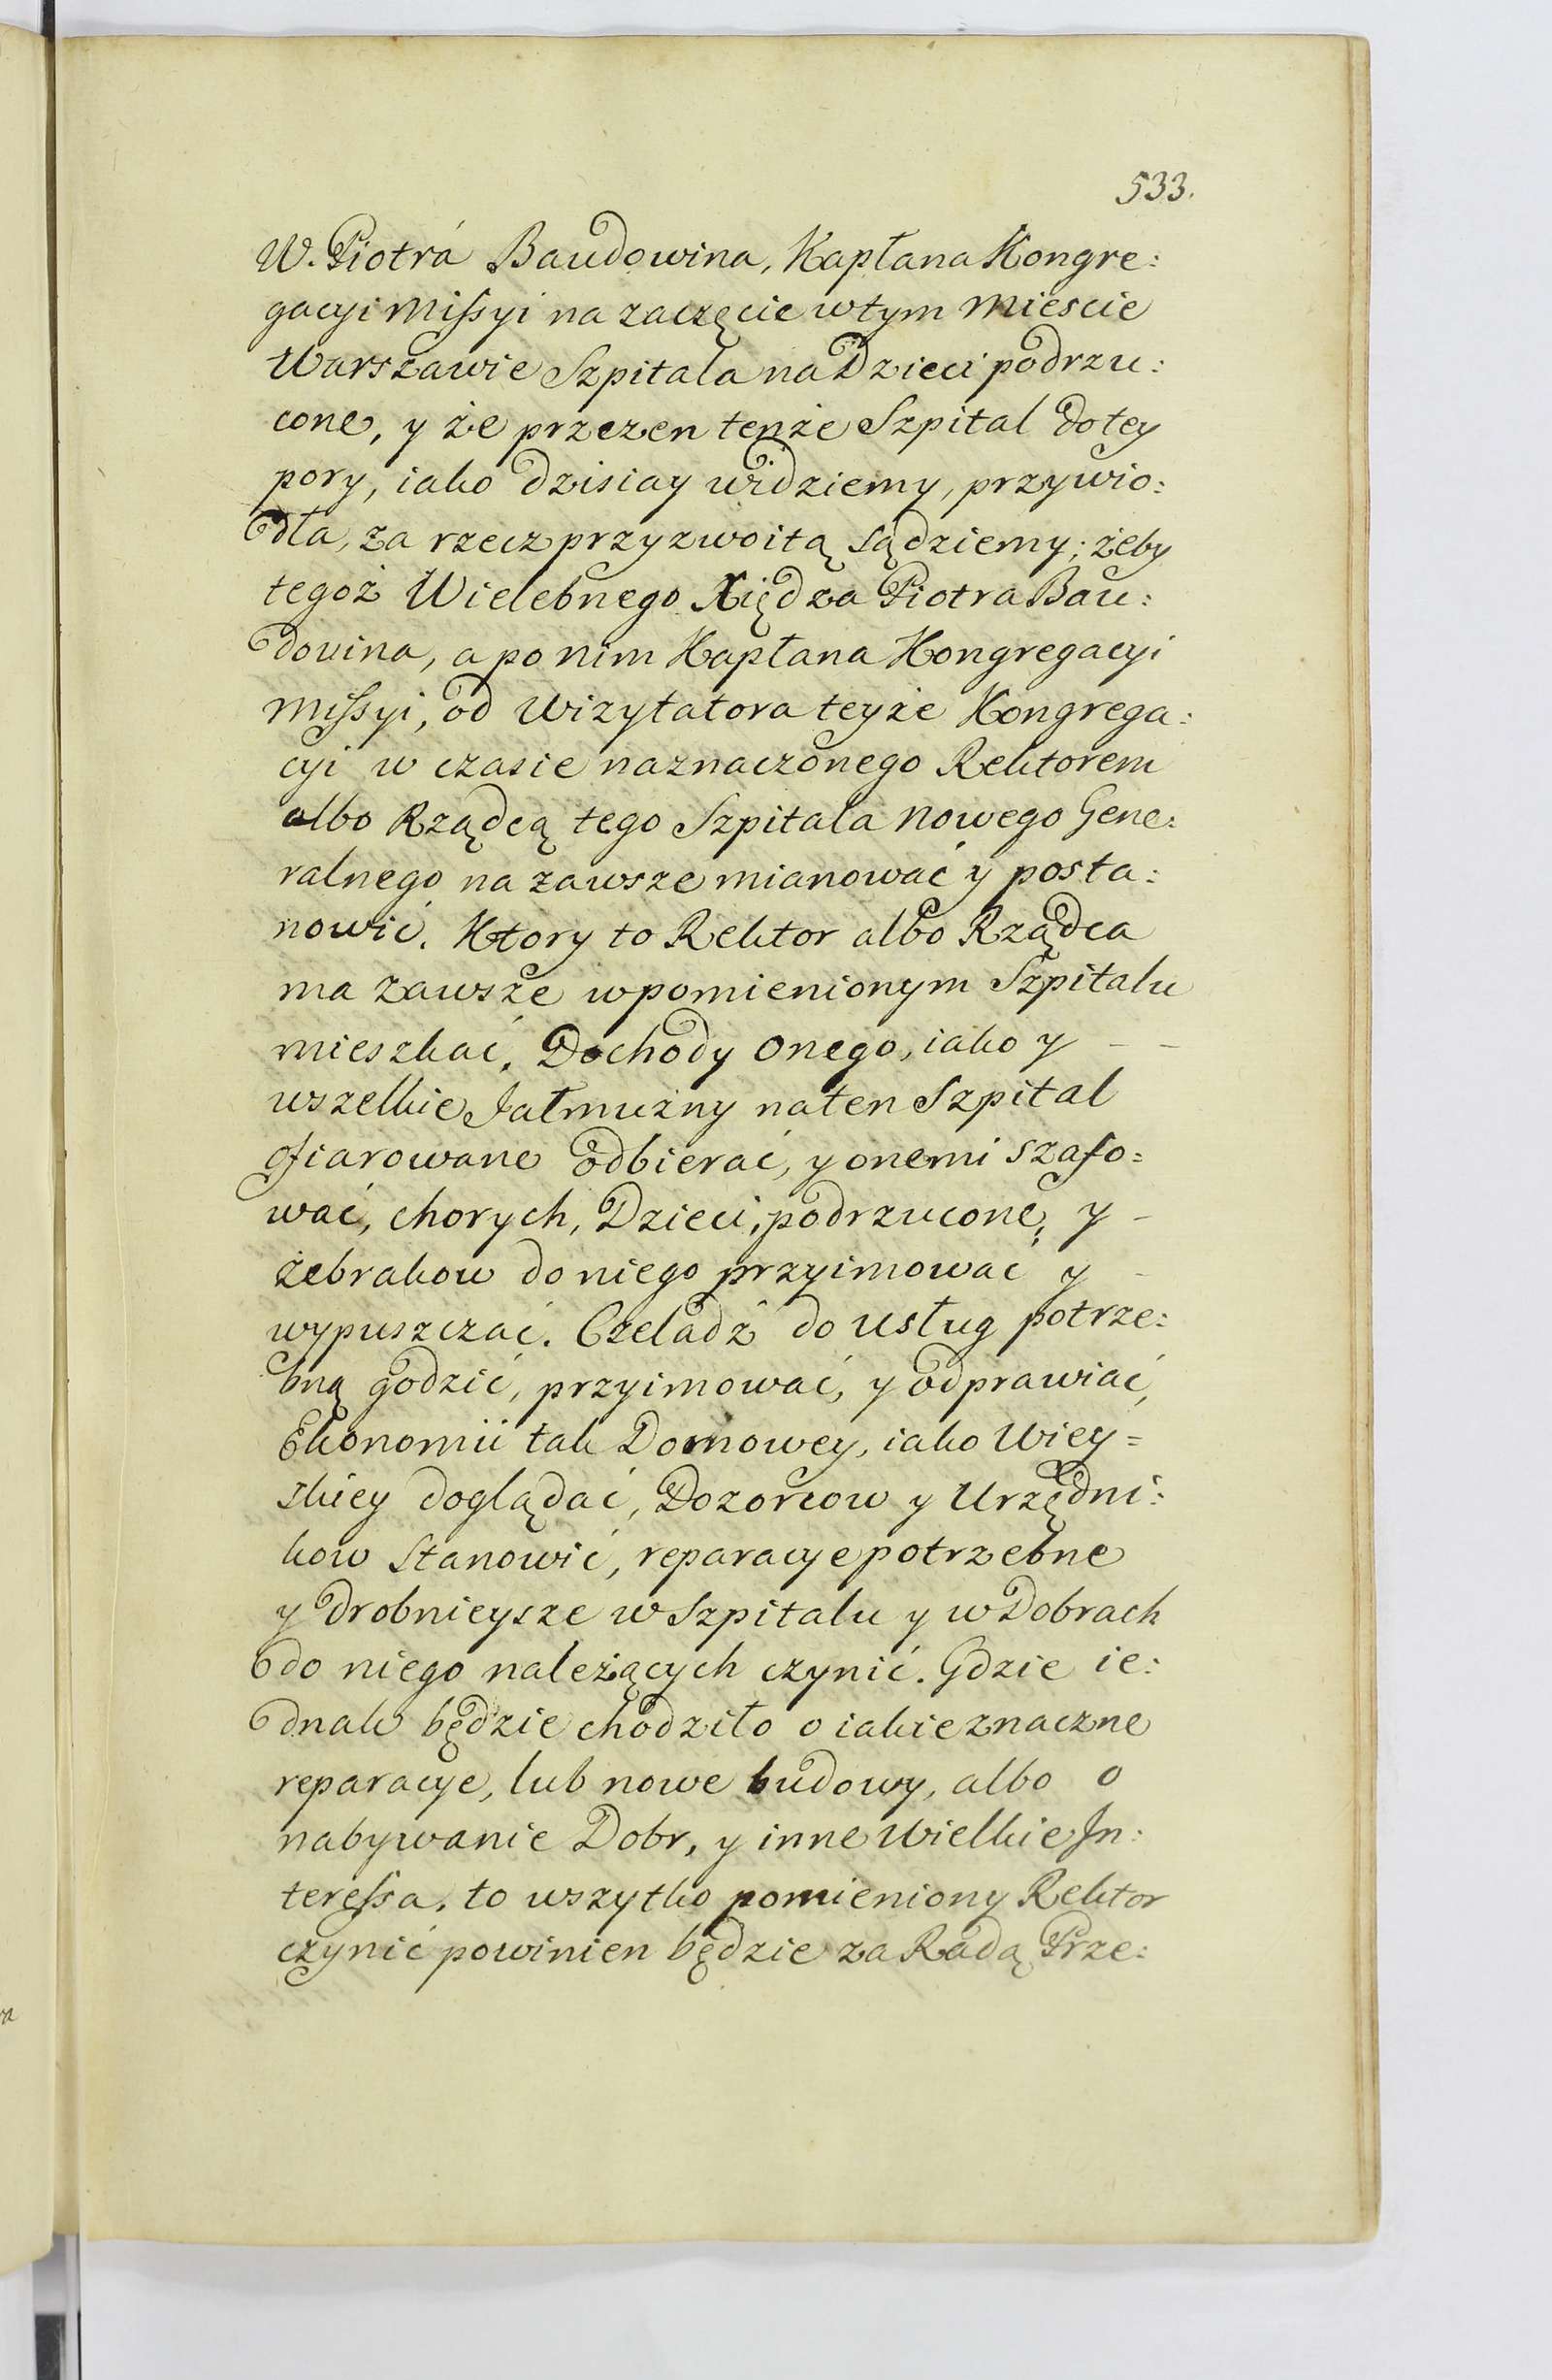 533.
W. Piotrá Baudowina, Kapłana Kongre:
gacyi Missyi na zaczęcie wtym Miescie
Warszawie Szpitala na Dzieci podrzu:
cone, y że przezen tenże Szpital do tey
pory, iako dzisiay widziemy, przywio:
dła, za rzecz przyzwoitą sądziemy; żeby
tegoż Wielebnego Xiędza Piotra Bau:
dovina, a po nim Kapłana Kongregacyi
Missyi, od Wizytatora teyże Kongrega:
cyi w czasie naznaczonego Rektorem
albo Rządcą tego Szpitala Nowego Gene:
ralnego na zawsze mianować y posta:
nowić. Ktory to Rektor albo Rządca
ma zawsze wpomienionym Szpitalu
mieszkać, Dochody onego, iako y - -
wszelkie Jałmużny naten Szpital
ofiarowane odbierać, y onemi szafo=
wać, chorych, Dzieci, podrzucone, y -
żebrakow do niego przyimować y -
wypuszczać. Czeladź do usług potrze:
bną godzić, przyimować, y odprawiać,
Ekonomii tak Domowey, iako Wiey=
skiey doglądać, Dozorcow y Urzędni:
kow stanowić, reparacye potrzebne
y drobnieysze w Szpitalu y w Dobrach
do niego należących czynić. Gdzie ie:
dnak będzie chodziło o iakie znaczne
reparacye, lub nowe budowy, albo o
nabywanie Dobr, y inne Wielkie In:
teressa, to wszytko pomieniony Rektor
czynić powinien będzie za Radą Prze: